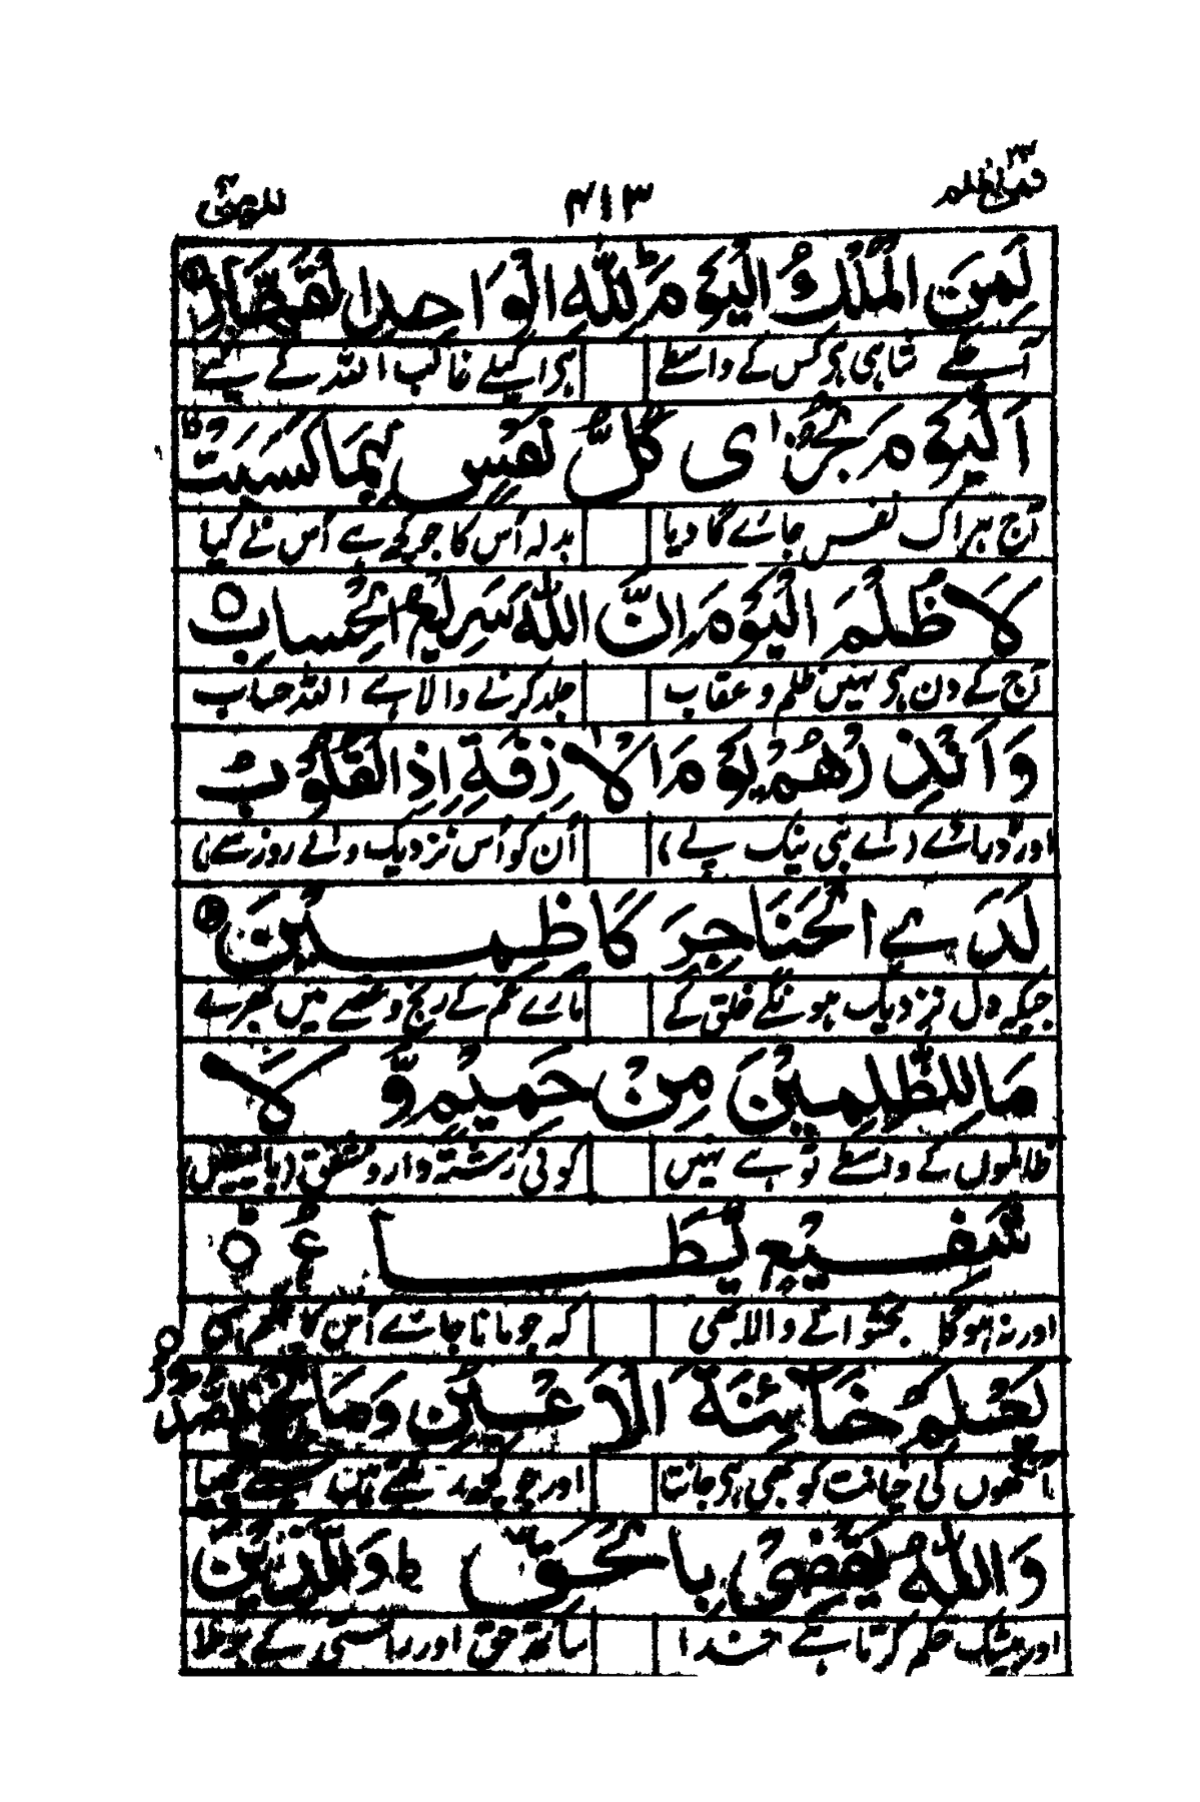 فمن اظلم ۲۴ ۴۱۳ المومن
لِمَنِ الْمُلْكُ الْيَوْمَ لِلّٰهِ الْوَاحِدِ الْقَهَّارِ
آسطے شاہی ہی کس کے واسطے ہی اکیلے غالب اللہ کے لیے
اَلْيَوْمَ تُجْزٰى كُلُّ نَفْسٍ بِمَا كَسَبَتْ ط
آج ہر اک نفس جاے گا دیا بدلہ اُس کا جو کچھ ہے اُس نے کیا
لَا ظُلْمَ الْيَوْمَ اِنَّ اللّٰهَ سَرِيْعُ الْحِسَابِ
آج کے دن ہی نہیں ظلم و عقاب جلد کرنے والا ہے اللہ حساب
وَ اَنْذِرْهُمْ يَوْمَ الْاٰزِفَةِ اِذِ الْقُلُوْبُ
اور ڈریاے (اے نبی نیک پے) اُن کو اُس نزدیک والے روز سے
لَدَے الْحَنَاجِرِ كَاظِمِيْنَ ط
جبکہ دل نزدیک ہونگے حلق کے مارے غم کے رنج و غصے میں بھرے
مَا لِلظّٰلِمِيْنَ مِنْ حَمِيْمٍ وَّ لَا
ظالموں کے واسطے تو ہے نہیں کوئی رشتہ دار و مشفق
شَفِيْعٍ يُّطَاعُ
اور نہ ہوگا بخشوانے والا بھی کہ جو مانا جاے اُس کا
يَعْلَمُ خَآئِنَةَ الْاَعْيُنِ وَمَا تُخْفِى الصُّدُوْرُ
آنکھوں کی خیانت کو بھی ہی جانتا اور جو کچھ
وَاللّٰهُ يَقْضِىْ بِالْحَقِّ ط وَالَّذِيْنَ
اور بیشک حکم کرتا ہے خدا ساتھ حق اور راستی کے